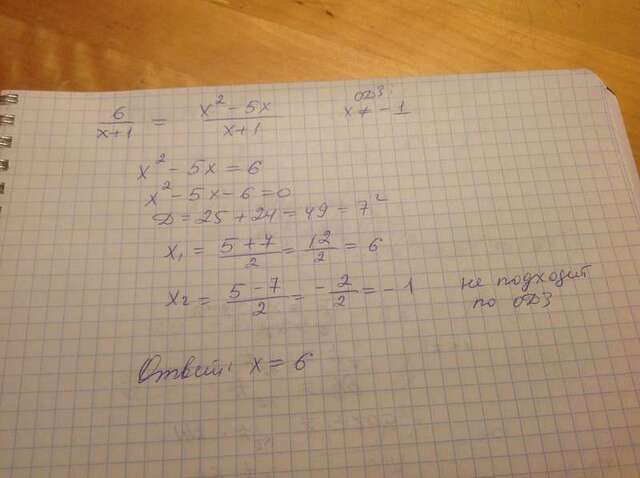 6/(x+1) = (x² - 5x)/(x+1)
ОДЗ:
x ≠ -1
x² - 5x = 6
x² - 5x - 6 = 0
D = 25 + 24 = 49 = 7²
x₁ = (5+7)/2 = 12/2 = 6
x₂ = (5-7)/2 = -2/2 = -1
не подходит
по ОДЗ
Ответ: x = 6